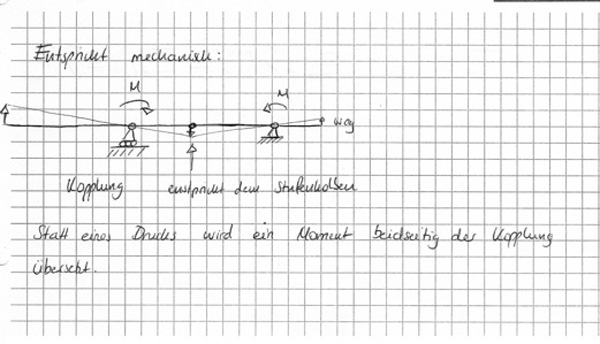 Entspricht mechanisch:
M M
weg
Kopplung entspricht dem Stufenkolben
Statt eines Drucks wird ein Moment beidseitig der Kopplung
übersetzt.